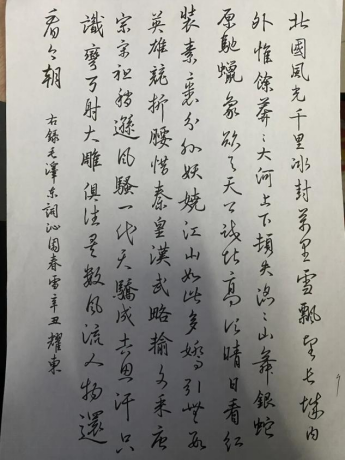 北國風光千里冰封萬里雪飄望長城内
外惟餘莽々大河上下頓失滔々山舞銀蛇
原馳蠟象欲与天公試比高須晴日看紅
裝素裹分外妖嬈江山如此多嬌引無數
英雄競折腰惜秦皇漢武略輸文采唐
宗宋祖稍遜風騷一代天驕成吉思汗只
識彎弓射大雕俱往矣數風流人物還
看今朝 右錄毛澤東詞沁園春雪辛丑耀東